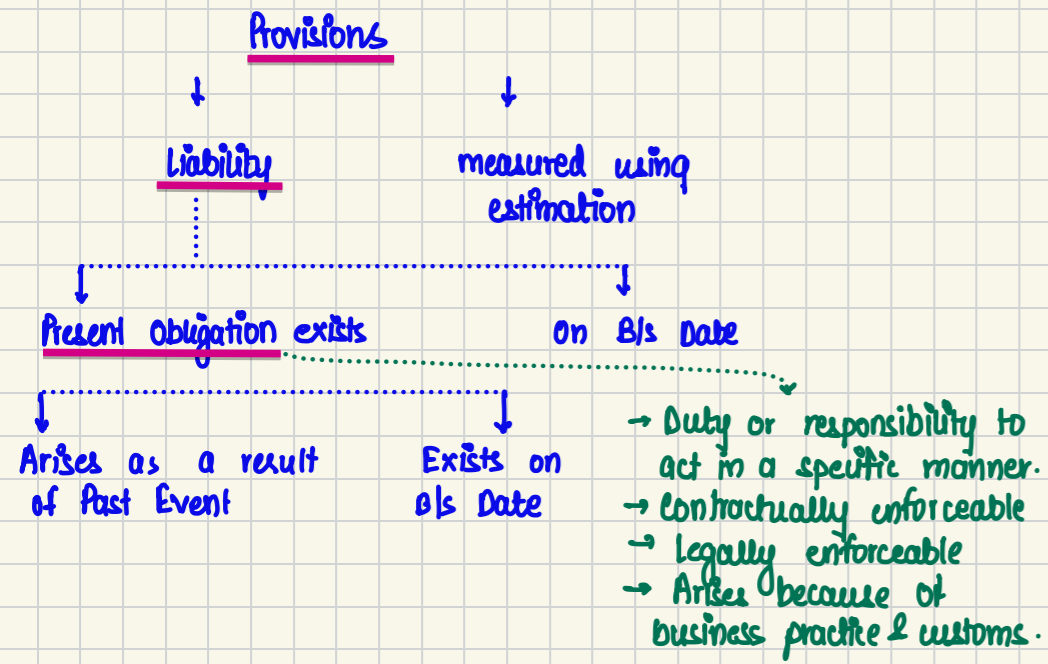 Provisions
Liability
measured using
estimation
Present Obligation exists
On B/s Date
Arises as a result
of Past Event
Exists on
B/s Date
→ Duty or responsibility to
act in a specific manner.
→ Contractually enforceable
→ Legally enforceable
→ Arises because of
business practice & customs.